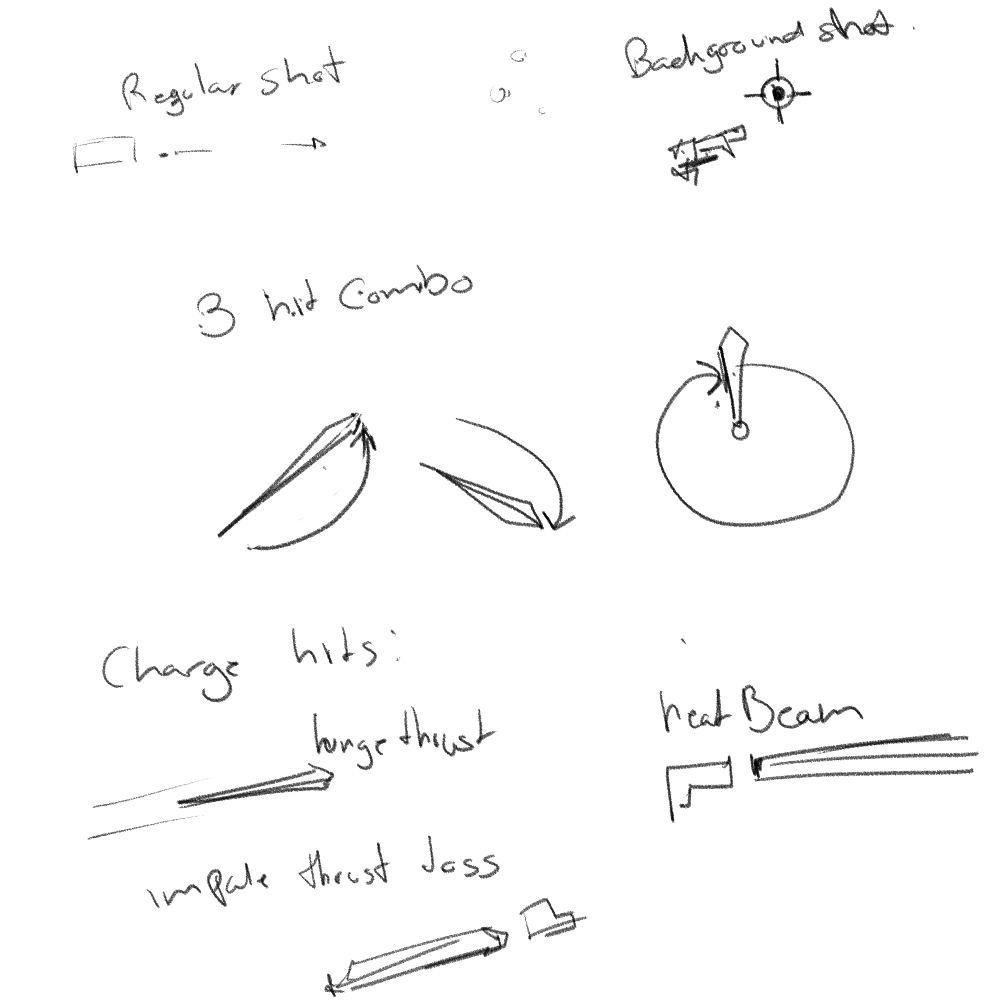 Regular shot
Background shot.
3 hit Combo
Charge hits:
lunge thrust
heat Beam
impale thrust Joss